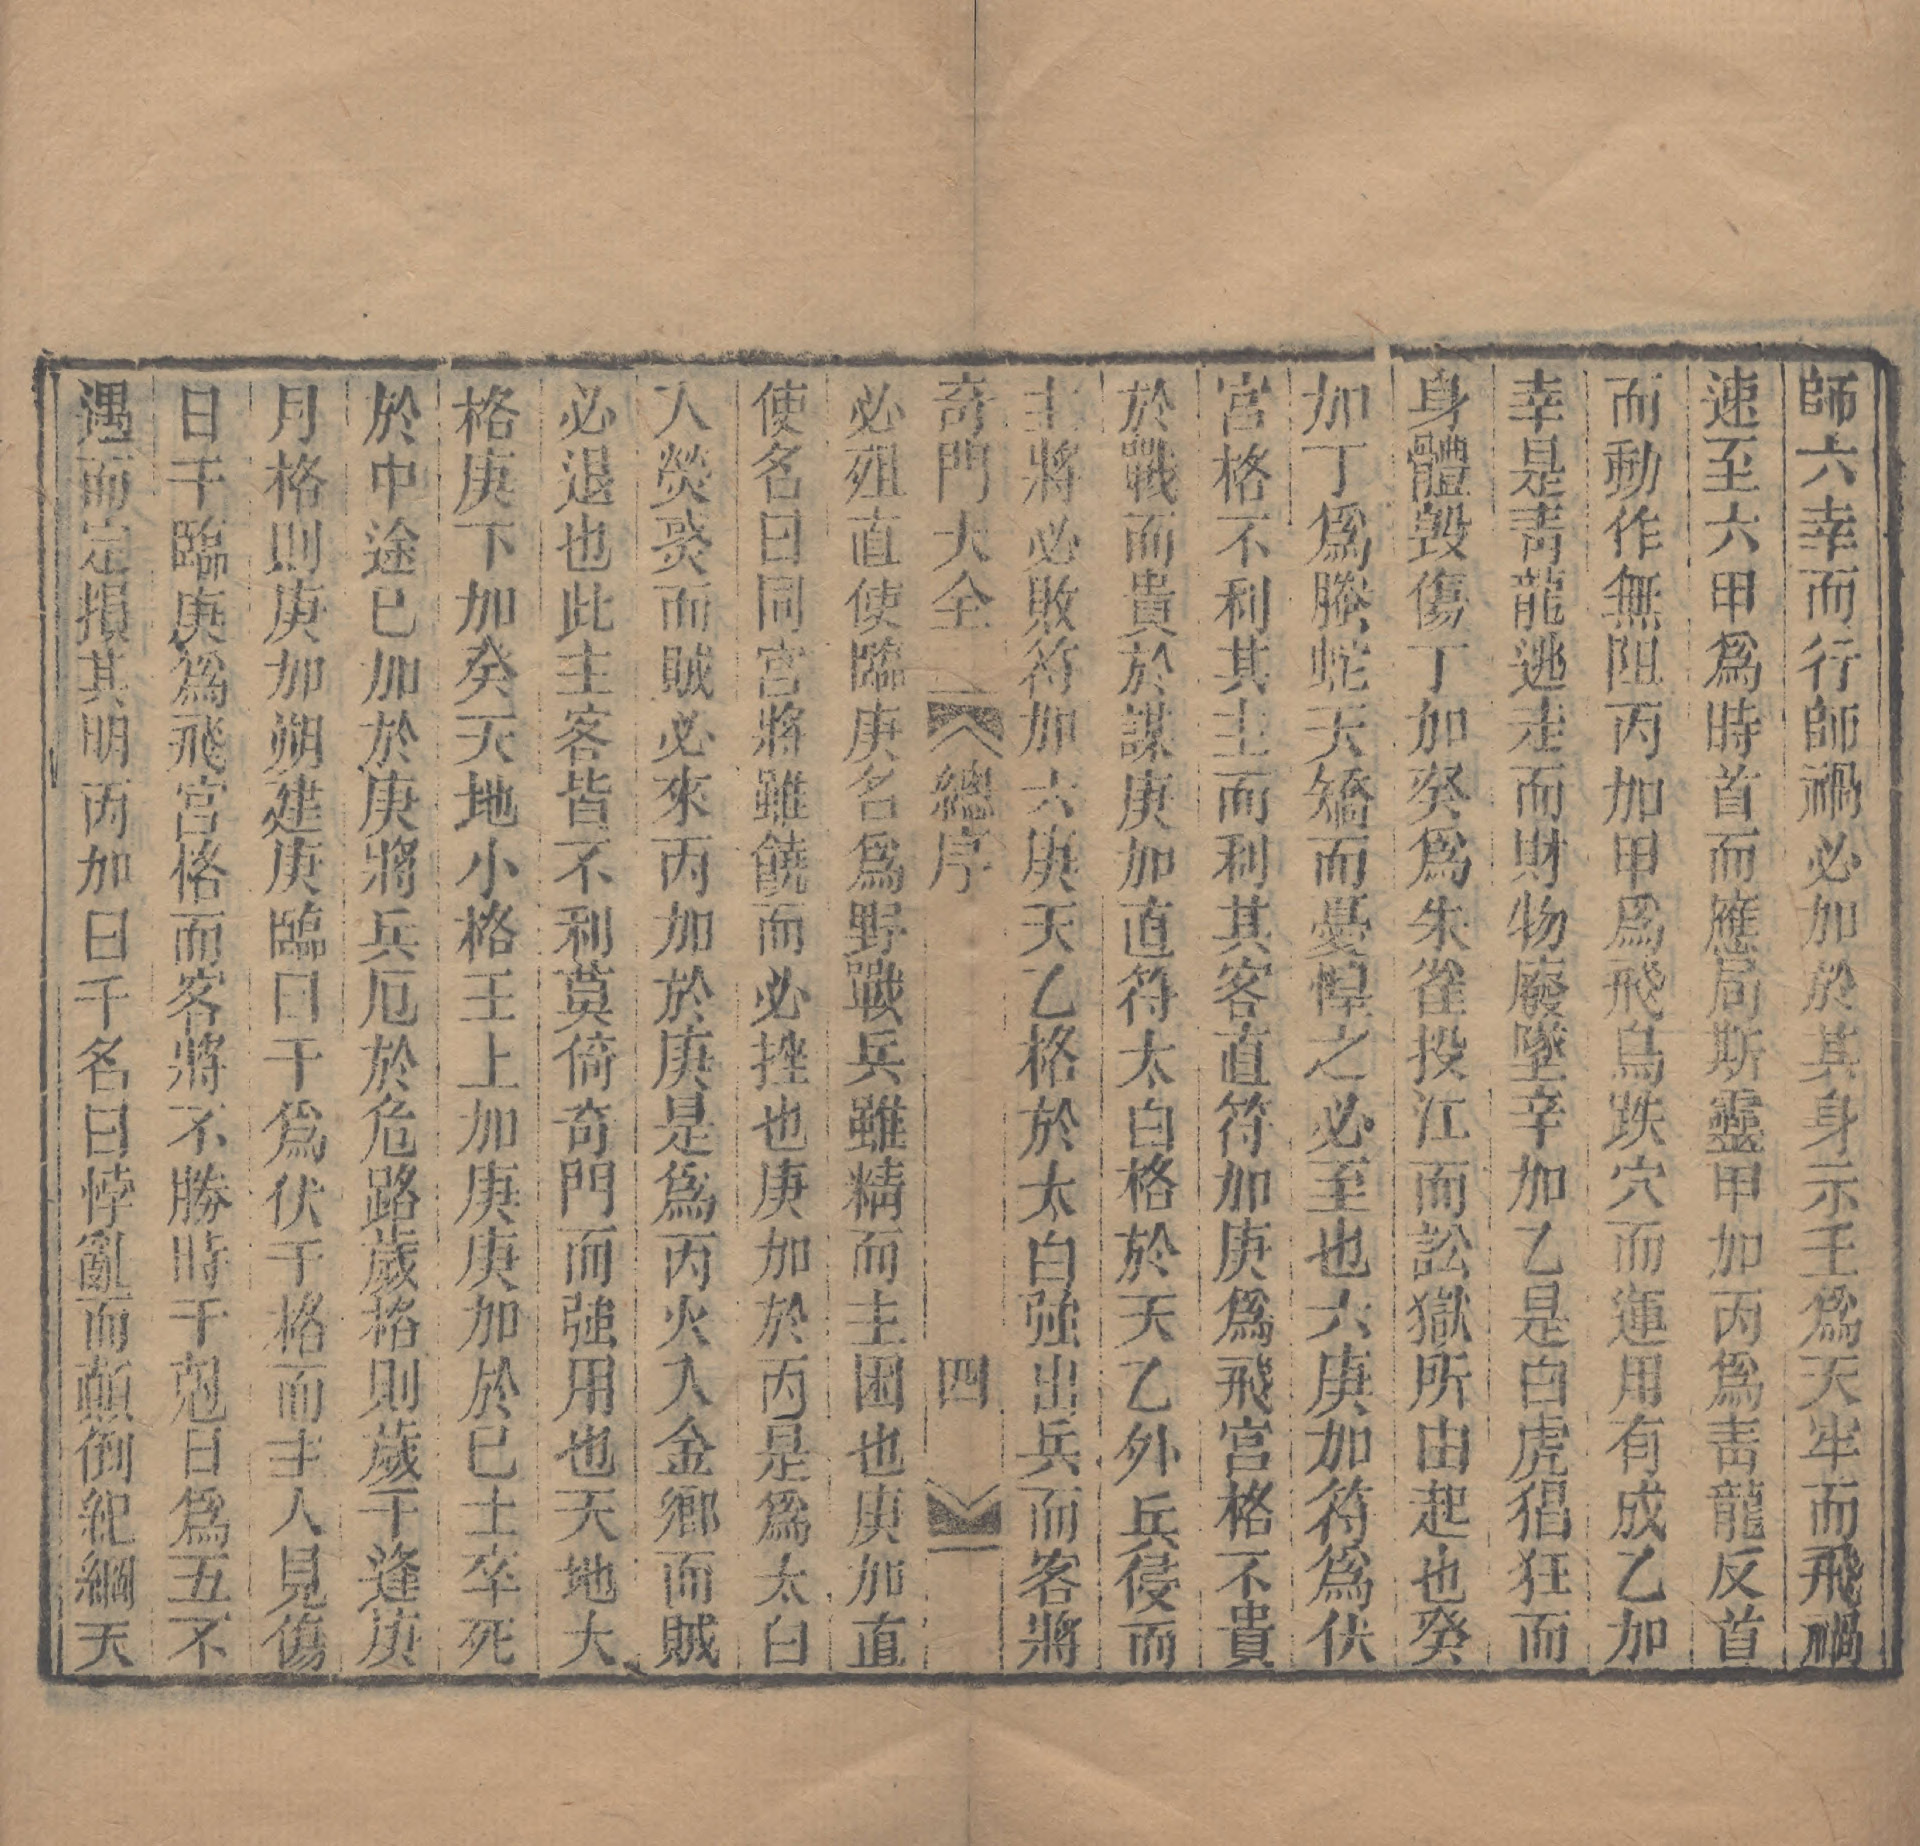 師六幸而行師禍必加於其身示壬爲天牢而飛禍
速至六甲爲時首而應局斯靈甲加丙爲靑龍反首
而動作無阻丙加甲爲飛鳥跌穴而運用有成乙加
幸是靑龍逃走而財物廢墜辛加乙是白虎猖狂而
身體毀傷丁加癸爲朱雀投江而訟獄所由起也癸
加丁爲螣蛇夭矯而憂惶之必至也六庚加符爲伏
宮格不利其主而利其客直符加庚爲飛宮格不貴
於戰而貴於謀庚加直符太白格於天乙外兵侵而
主將必敗符加六庚天乙格於太白強出兵而客將
奇門大全 總序 四
必殂直使臨庚名爲野戰兵雖精而主困也庚加直
使名曰同宮將雖饒而必挫也庚加於丙是爲太白
入熒熒而賊必來丙加於庚是爲丙火入金鄉而賊
必退也此主客皆不利莫倚奇門而強用也天地大
格庚下加癸天地小格王上加庚庚加於已士卒死
於中途已加於庚將兵厄於危路歲格則歲干逢庚
月格則庚加朔建庚臨日干爲伏干格而主人見傷
日干臨庚爲飛宮格而客將不勝時干剋日爲五不
遇而定損其明丙加日干名曰悖亂而顛倒紀綱天